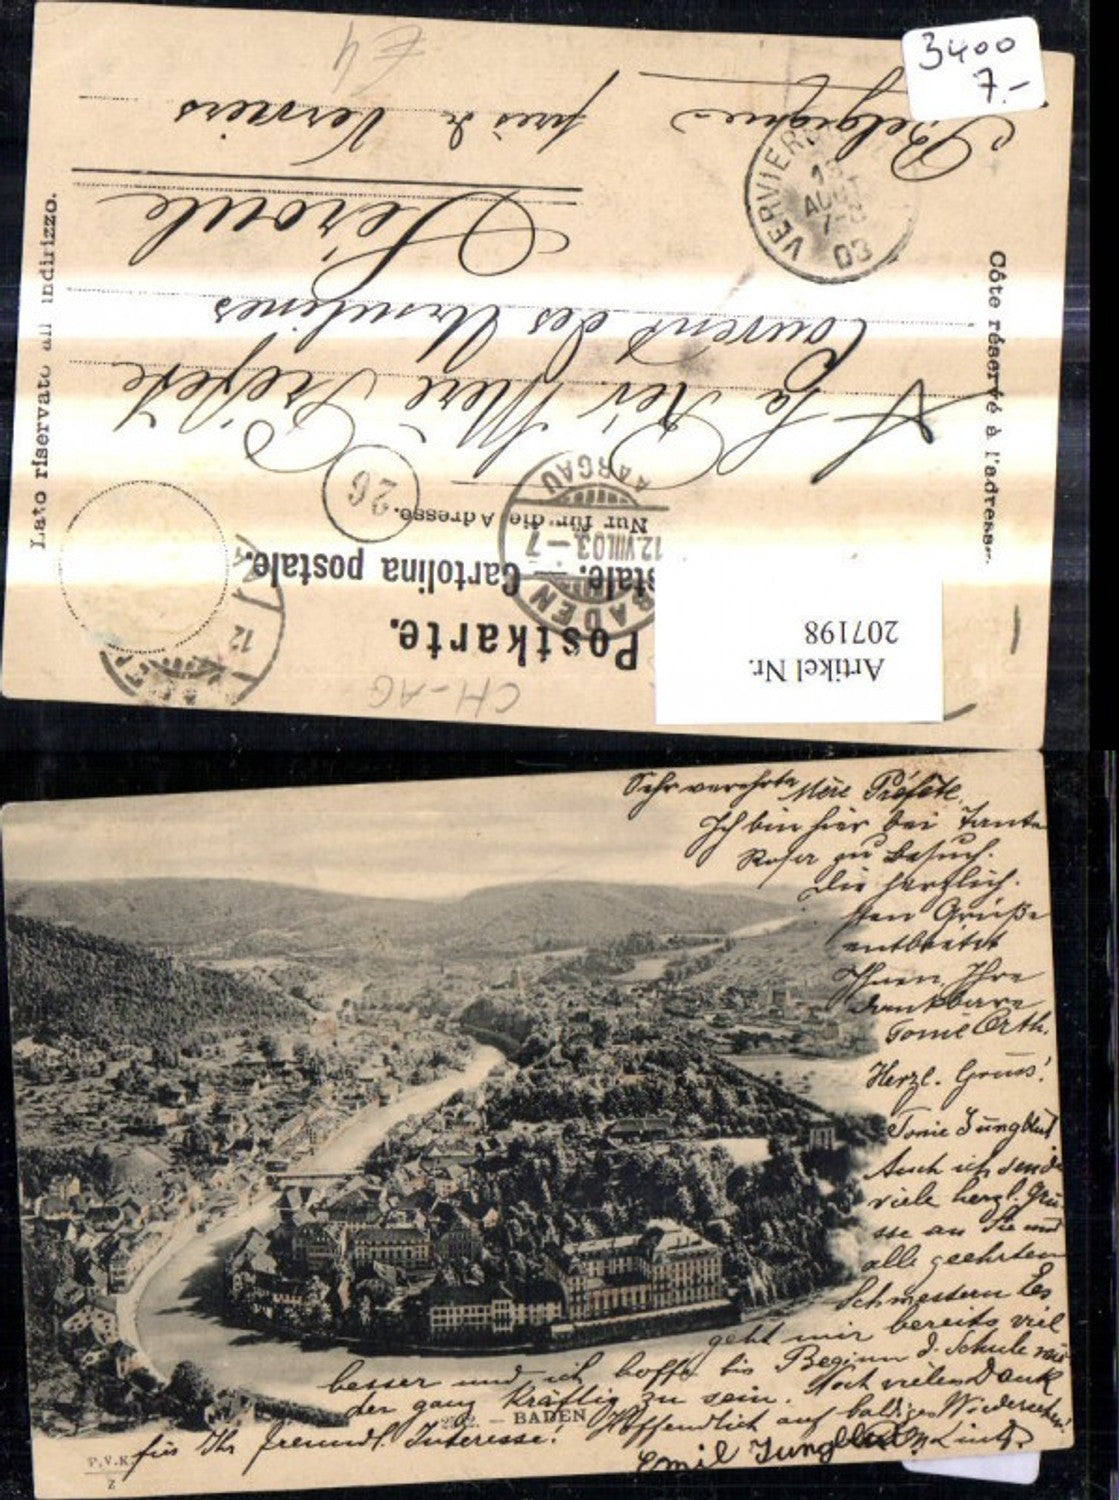 3400
7.-
E4
Postkarte.
stale. Cartolina postale.
Nur für die Adresse.
Côte réservé à l'adresse
Lato riservato all indirizzo.
BADEN
12.VIII.03.-7
AARGAU
26
12
CH-AG
Artikel Nr.
207198
A la Rév. Mère Préfète
Couvent des Ursulines
près de Verviers
Belgique
VERVIERS
13
AOUT
7-8
03
Sehr verehrte Mère Préfète.
Ich bin hier bei Tante
Rosa zu Besuch.
Die herzlich-
sten Grüße
entbietet
Ihnen Ihre
dankbare
Tonie Orth.
Herzl. Gruss!
Tonie Jungblut
Auch ich sende
viele herzl. Grü-
sse an Sie und
alle geehrten
Schwestern Es
geht mir bereits viel
besser und ich hoffe bis Beginn d. Schule wie
der ganz kräftig zu sein. Noch vielen Dank
für Ihr freundl. Interesse! Hoffendlich auf baldiges Wiedersehen!
Emil Jungblut
2592. – BADEN
P.V.K.
Z